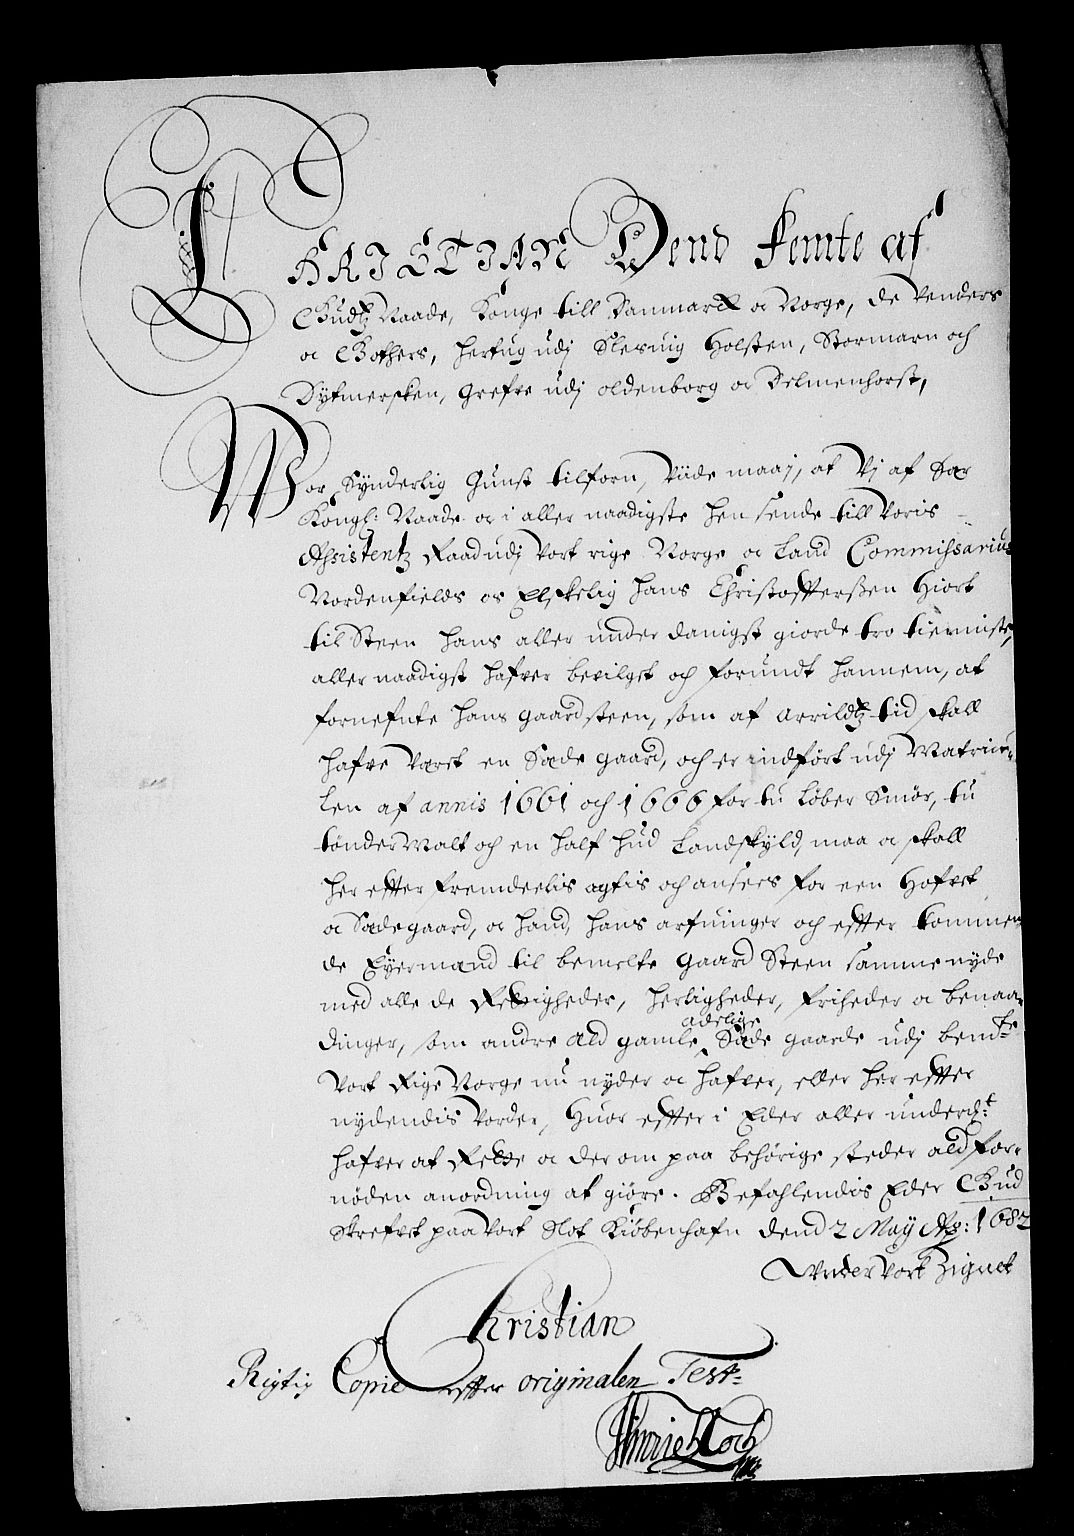 CHRISTIAN Dend Femte af
Gudtz Naade, Konge till Danmarck oc Norge, de Venders
oc Gothers, Hertug udj Slesuig Holsten, Stormarn och
Dytmersken, Grefve udj oldenborg oc Delmenhorst,
Wor Synderlig Gunst tilforn, Viide maaj, at Vj af Sær
Kongl: Naade oc i aller naadigste hen sende till Voris
Assistentz Raad udj Vort rige Norge oc Land Commissarius
Nordenfields os Elskelig Hans Christofferssen Hiort
til Steen hans aller under danigst giorde tro tienniste,
aller naadigst hafver bevilget och forundt hannem, at
fornefnte hans gaard steen, som af Arrildtz tid skall
hafve Været en Sæde gaard, och er indført udj Matricu-
len af annis 1661 och 1666 for tu Løber Smør, tu
tønder Malt och en half hud Landskyld, maa oc skall
her effter fremdeelis agtis och ansees for een Hofvet
oc Sædegaard, oc hand, hans arfuinger och effter kommen-
de Eyermænd til bemelte Gaard Steen samme nyde
med alle de Rettigheder, herligheder, friheder oc benaa-
dinger, som andre Ald gamle adelige Sæde gaarde udj bemte
Vort Rige Norge nu nyder oc hafver, eller her effter
nydendis Vorder, Huor effter i Eder aller underd:t
hafver at Rette oc der om paa behørige steder ald for-
nøden anordning at giøre. Befahlendis Eder Gud
Skrefvet paa Vort Slot Kiøbenhafn dend 2 Maÿ Ao: 1682
Under Vort Zignet
Christian
Rigtig Copie effter originalen Test: